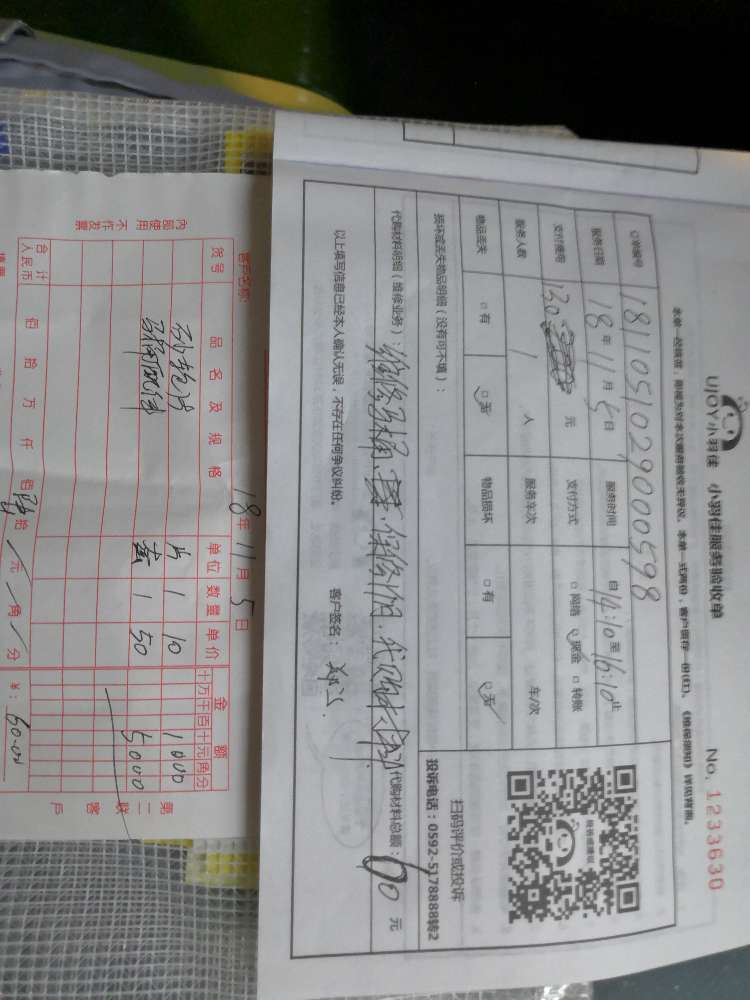 UJOY小羽佳 小羽佳服务验收单
No. 1233630
本单一经核签，即视为对本次服务验收无异议。本单一式两份，客户留存一份(红)。《维保细则》详见背面。
订单编号 18110510290000598
服务日期 18年11月5日 服务时间 自14:10至16:10止
支付费用 130 元 支付方式 □网络 ☑现金 □转账
服务人数 1 人 服务车次 车/次
物品丢失 □有 ☑无 物品损坏 □有 ☑无
损坏或丢失物品明细（没有可不填）：
扫码评价或投诉
投诉电话：0592-5178888转2
代购材料明细（维修业务）：维修马桶 代购材料总额：60 元
以上填写信息已经本人确认无误，不存在任何争议纠纷。 客户签名：
客户名称： 18年11月5日
货号 品名及规格 单位 数量 单价 金额
十万千百十元角分
片 1 10 1000
套 1 50 5000
合计人民币 佰拾万仟佰陆拾/元/角/分 ¥：60.00
内部使用 不作发票
第二联 客户